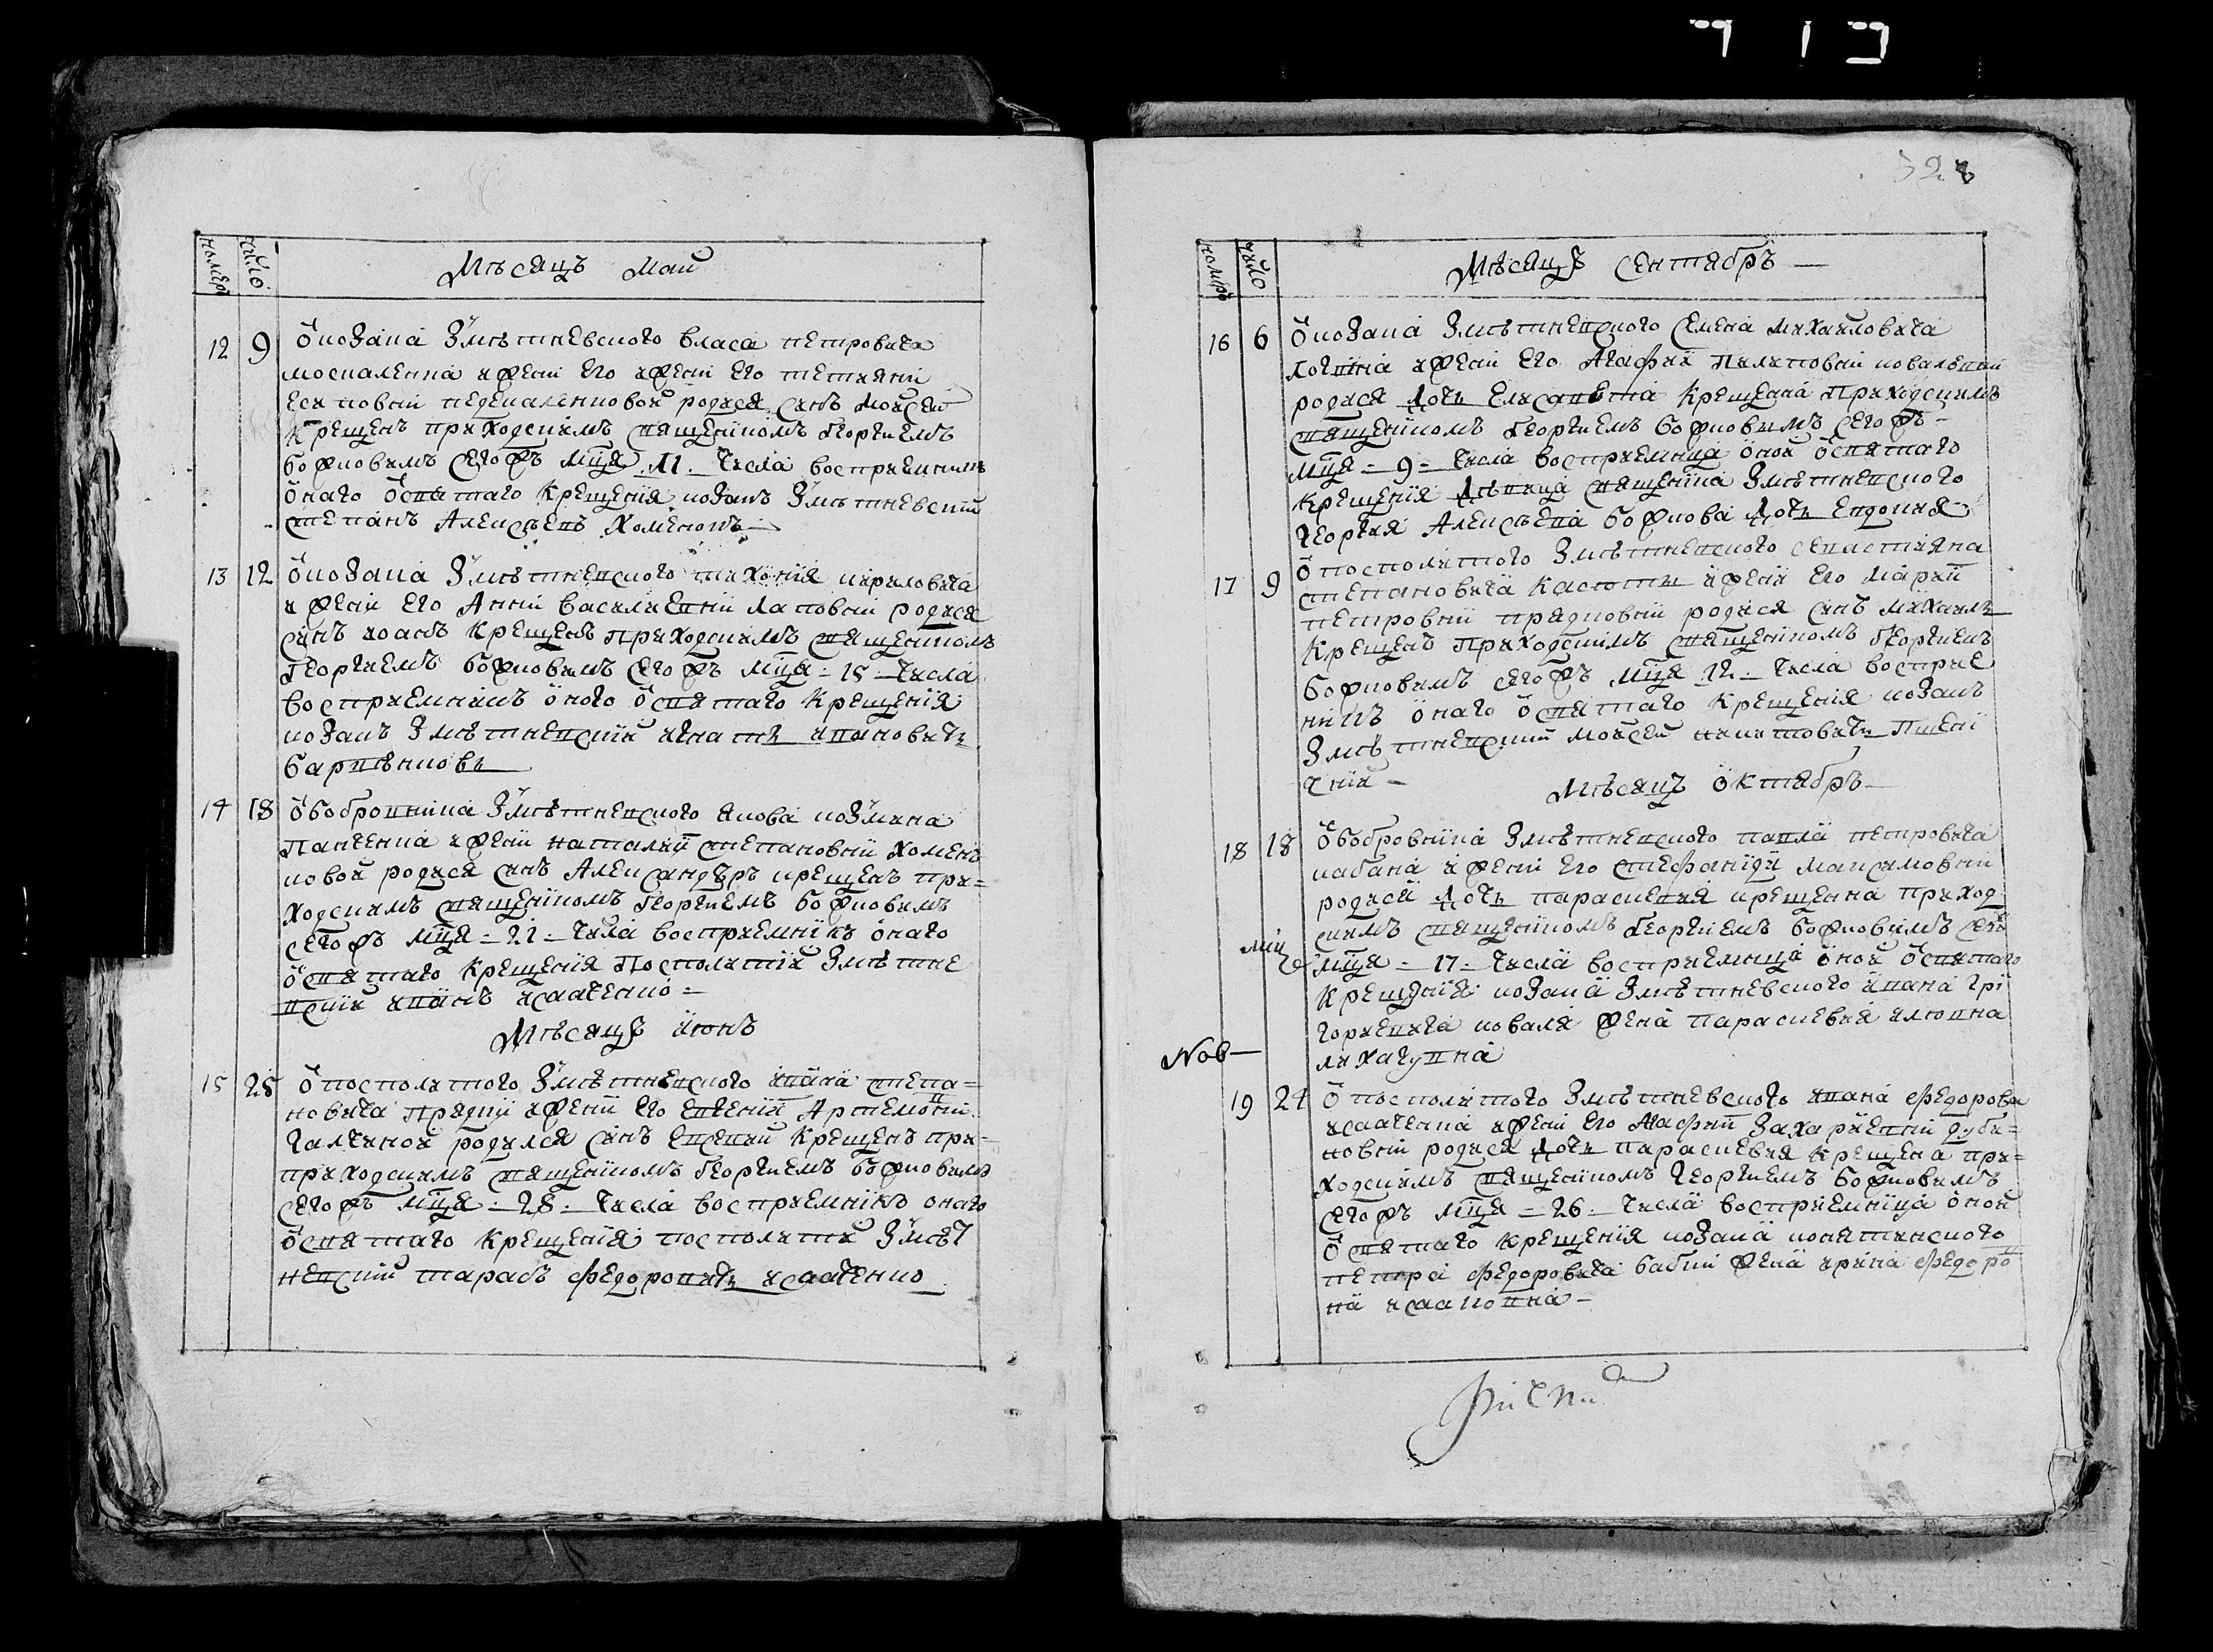 328
номеръ число Мѣсяцъ Май
12 9 ő козака Змѣтневского власа петровича
москаленка и жени его и жени его тетяни
есиповни педепаленковой родися синъ Мойсей
Крещенъ приходскимъ священикомъ Георгиемъ
божковимъ сегожъ мца 11 числа восприемникъ
онаго ő святаго Крещения козакъ Змѣтневский
степанъ Алексѣевъ Хоменокъ
13 12 ő козака Змѣтневского тихония кириловича
и жени его Анни василиевни лаповни родися
синъ иоанъ Крещенъ приходскимъ священикомъ
Георгиемъ божковимъ сегожъ мца = 15 = числа
восприемникъ оного ő святаго Крещения
козакъ Змѣтневский игнатъ ивановичъ

14 18 ő бобровника Змѣтневского якова козмина
Панченка и жени наталии степановни хомен
ковой родися синъ Александъръ крещенъ при=
ходскимъ священикомъ Георгиемъ божковимъ
сегожъ мца = 21 = числа восприемникъ онаго
ő святаго Крещения Посполитий Змѣтне
вский иванъ исааченко =
Мѣсяцъ июнъ
15 25 ő посполитого Змѣтневского ивана степа=
новича прядки и жени его евгении Артемовни
Галчиной родился синъ евсевий Крещенъ при=
приходскимъ священикомъ Георгиемъ божковимъ
сегожъ мца = 28 = числа восприемникъ онаго
ő святаго Крещения посполитий Змѣт
невский тарасъ федоровичъ исааченко
номеръ число Мѣсяцъ Сентябръ
16 6 ő козака Змѣтневского Семена михайловича
и жени его Агафии Пилиповни ковалевни
родися дочь Елисавета Крещена Приходскимъ
священикомъ Георгиемъ божковимъ сегожъ
мца = 9 = числа восприемница оной ő святаго
Крещения дѣвица священика Змѣтневского
Георгия Алексѣева божкова дочь Евдокия
17 9 ő посполитого Змѣтневского севастияна
степановича Касюти и жени его Марии
петровни прядковни родися синъ михаилъ
Крещенъ приходскимъ священикомъ Георгиемъ
божковимъ сегожъ мца 12 числа восприе
никъ онаго ő святаго Крещения козакъ
Змѣтневский мойсей никитовичъ Пшени
чний
Мѣсяцъ октябръ
18 18 ő бобровника Змѣтневского павла петровича
кабана и жени его стефаниди максимовни
родися дочь параскевия крещенна приход
скимъ священикомъ Георгиемъ божковимъ сегожъ
мца = 17 = числа восприемница оной ő святаго
Крещения козака Змѣтневского ивана Гри
гориевича коваля жена Параскевия

Нов
19 24 ő посполитого Змѣтневского ивана федорова
исааченка и жени его Агафии Захариевни дуби=
новни родися дочь параскевия Крещена при=
ходскимъ священикомъ Георгиемъ божковимъ
сегожъ мца = 26 = числа восприемница оной
ő святаго крещения козака конятинского
петра федоровича бабки жена ирина федоро
на исааковна